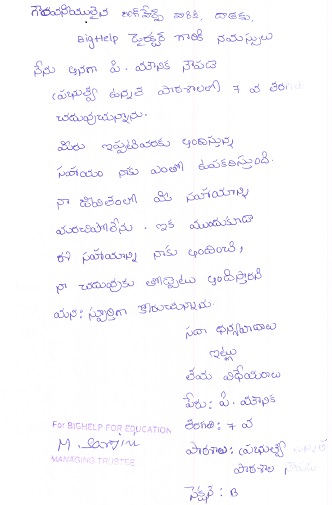 గౌరవనీయులైన బిగ్‌హెల్ప్ వారికి, దాతకు,
BigHelp డైరెక్టర్ గారికి నమస్సులు
నేను అనగా పి. మౌనిక
ప్రభుత్వ ఉన్నత పాఠశాలలో 7 వ తరగతి
చదువుచున్నాను.
మీరు ఇప్పటివరకు అందిస్తున్న
సహాయం నాకు ఎంతో ఉపకరిస్తుంది.
నా జీవితంలో మీ సహాయాన్ని
మరచిపోలేను. ఇక ముందుకూడా
ఈ సహాయాన్ని నాకు అందించి,
నా చదువుకు తోడ్పాటు అందిస్తారని
మనఃస్ఫూర్తిగా కోరుచున్నాను.
సదా ధన్యవాదాలు
ఇట్లు
తమ విధేయురాలు
పేరు: పి. మౌనిక
తరగతి: 7 వ
పాఠశాల: ప్రభుత్వ ఉన్నత
పాఠశాల,
సెక్షన్: B
For BIGHELP FOR EDUCATION
MANAGING TRUSTEE